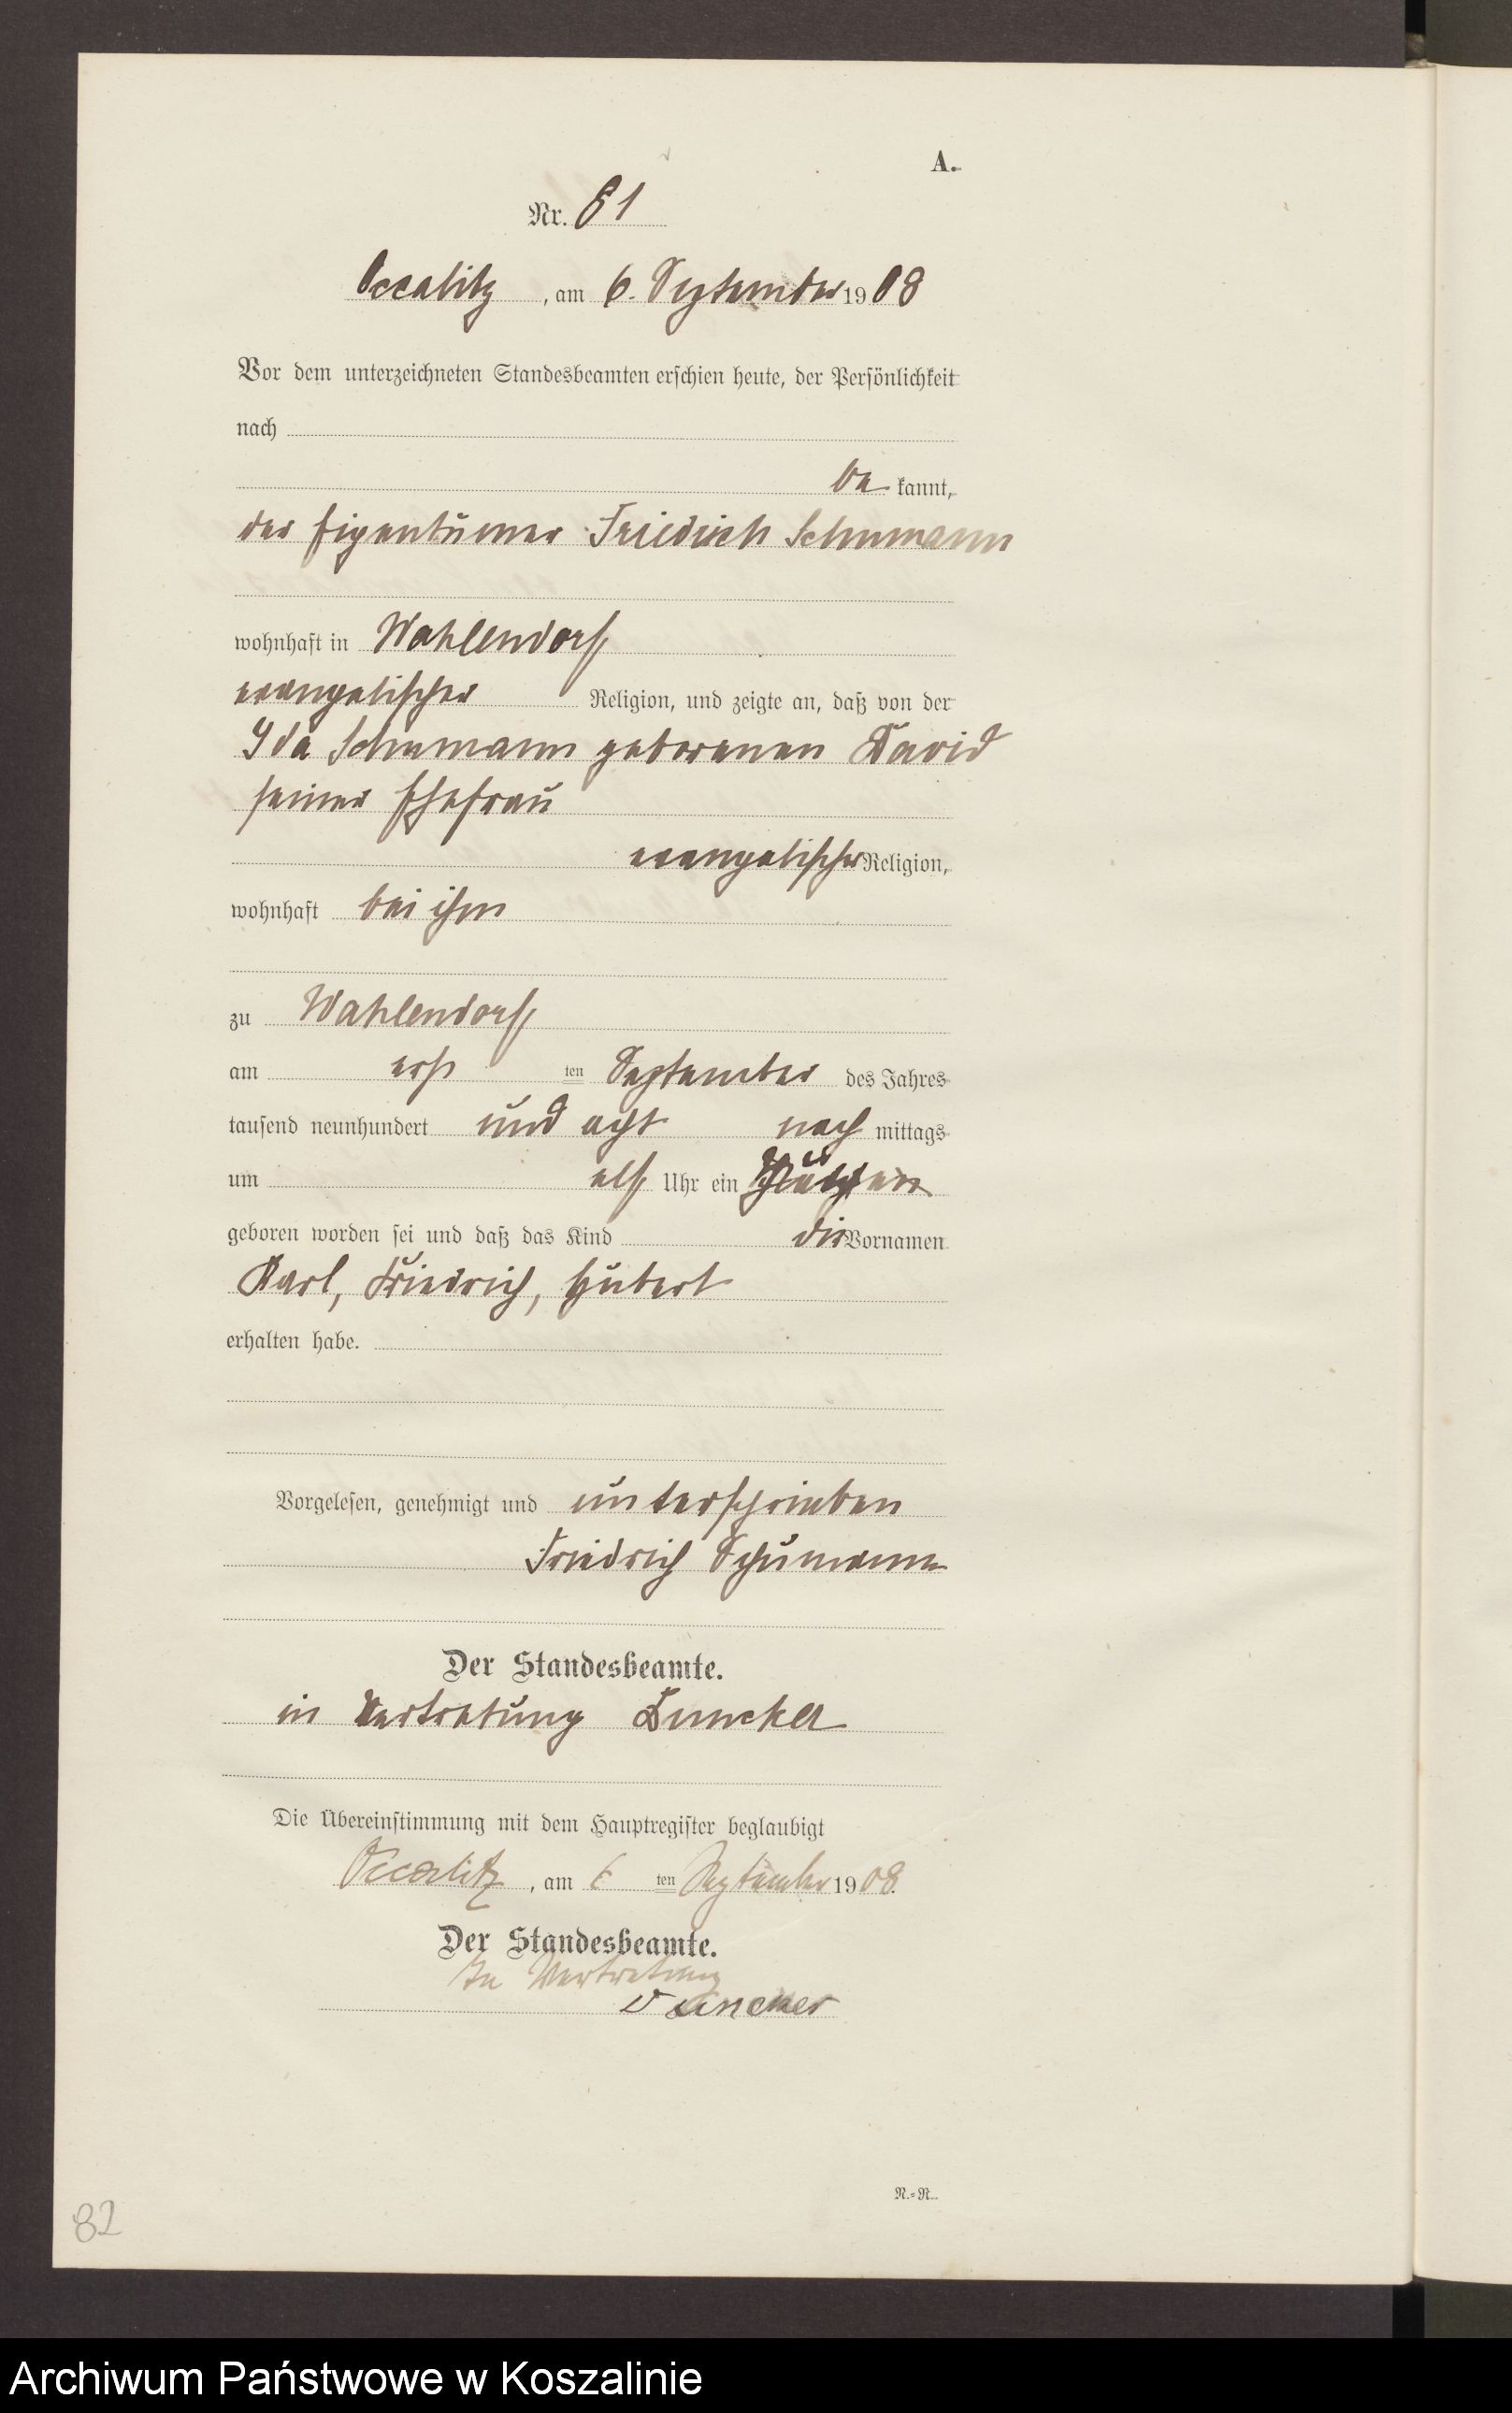 A.
Nr. 81
Occalitz, am 6. September 1908
Vor dem unterzeichneten Standesbeamten erschien heute, der Persönlichkeit
nach
be kannt,
der Eigentümer Friedrich Schumann
wohnhaft in Wahlendorf
evangelischer Religion, und zeigte an, daß von der
Ida Schumann geborenen David
seiner Ehefrau
evangelischer Religion,
wohnhaft bei ihm
zu Wahlendorf
am erst ten September des Jahres
tausend neunhundert und acht nach mittags
um elf Uhr ein
geboren worden sei und daß das Kind die Vornamen
Karl, Friedrich, Hubert
erhalten habe.
Vorgelesen, genehmigt und unterschrieben
Friedrich Schumann
Der Standesbeamte.
in Vertretung Duncker
Die Übereinstimmung mit dem Hauptregister beglaubigt
Occalitz, am 6 ten September 1908.
Der Standesbeamte.
In Vertretung
Duncker
N.=R.
82
Archiwum Państwowe w Koszalinie